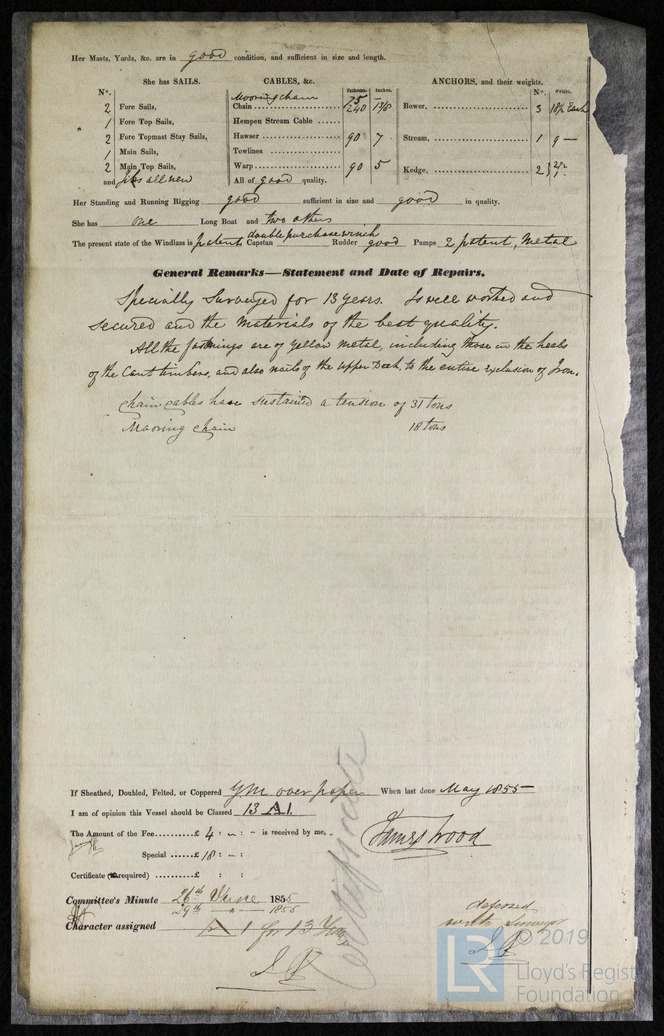 Her Masts, Yards, &c. are in good condition, and sufficient in size and length.
She has SAILS. CABLES, &c. ANCHORS, and their weights.
N°. Fathoms. Inches. N°. Weight.
Mooring chain 75
2 Fore Sails, Chain 240 1 3/16 Bower, 3 18½ Each
1 Fore Top Sails, Hempen Stream Cable
2 Fore Topmast Stay Sails, Hawser 90 7 Stream, 1 9 —
1 Main Sails, Towlines
2 Main Top Sails, Warp 90 5 Kedge, 2
and Jibs all new All of good quality.
Her Standing and Running Rigging good sufficient in size and good in quality.
She has one Long Boat and two others
The present state of the Windlass is patent Capstan double purchase winch Rudder good Pumps 2 patent, Metal
General Remarks—Statement and Date of Repairs.
Specially Surveyed for 13 years. Is well worked and
secured and the Materials of the best quality.
All the fastnings are of yellow metal, including those in the heels
of the Cant timbers, and also nails of the upper Deck, to the entire exclusion of Iron.
Chain cables have sustained a tension of 31 tons
Mooring chain 18 tons
If Sheathed, Doubled, Felted, or Coppered YM over paper When last done May 1855
I am of opinion this Vessel should be Classed 13 A1.
The Amount of the Fee £ 4 : – : – is received by me,
James Wood
Special £ 18 : – :
Certificate (if required) £ : :
Committee's Minute 26th June 1855
29th — " — 1855
Character assigned A 1 for 13 Years
Certificate
deferred
with
© 2019
LR Lloyd's Register
Foundation